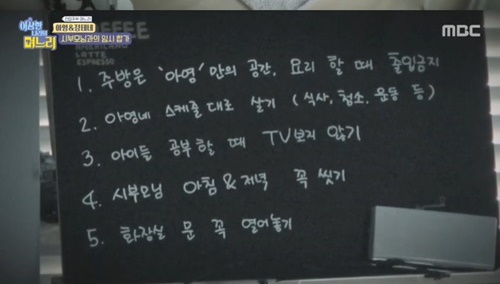 이상한 나라의
며느리
전업주부 며느리
아영&정태네
시부모님과의 임시 합가
MBC
COFFEE
AMERICANO
LATTE
ESPRESSO
1. 주방은 '아영' 만의 공간, 요리 할 때 출입금지
2. 아영네 스케줄 대로 살기 ( 식사, 청소, 운동 등 )
3. 아이들 공부 할 때 TV보지 않기
4. 시부모님 아침 & 저녁 꼭 씻기
5. 화장실 문 꼭 열어놓기